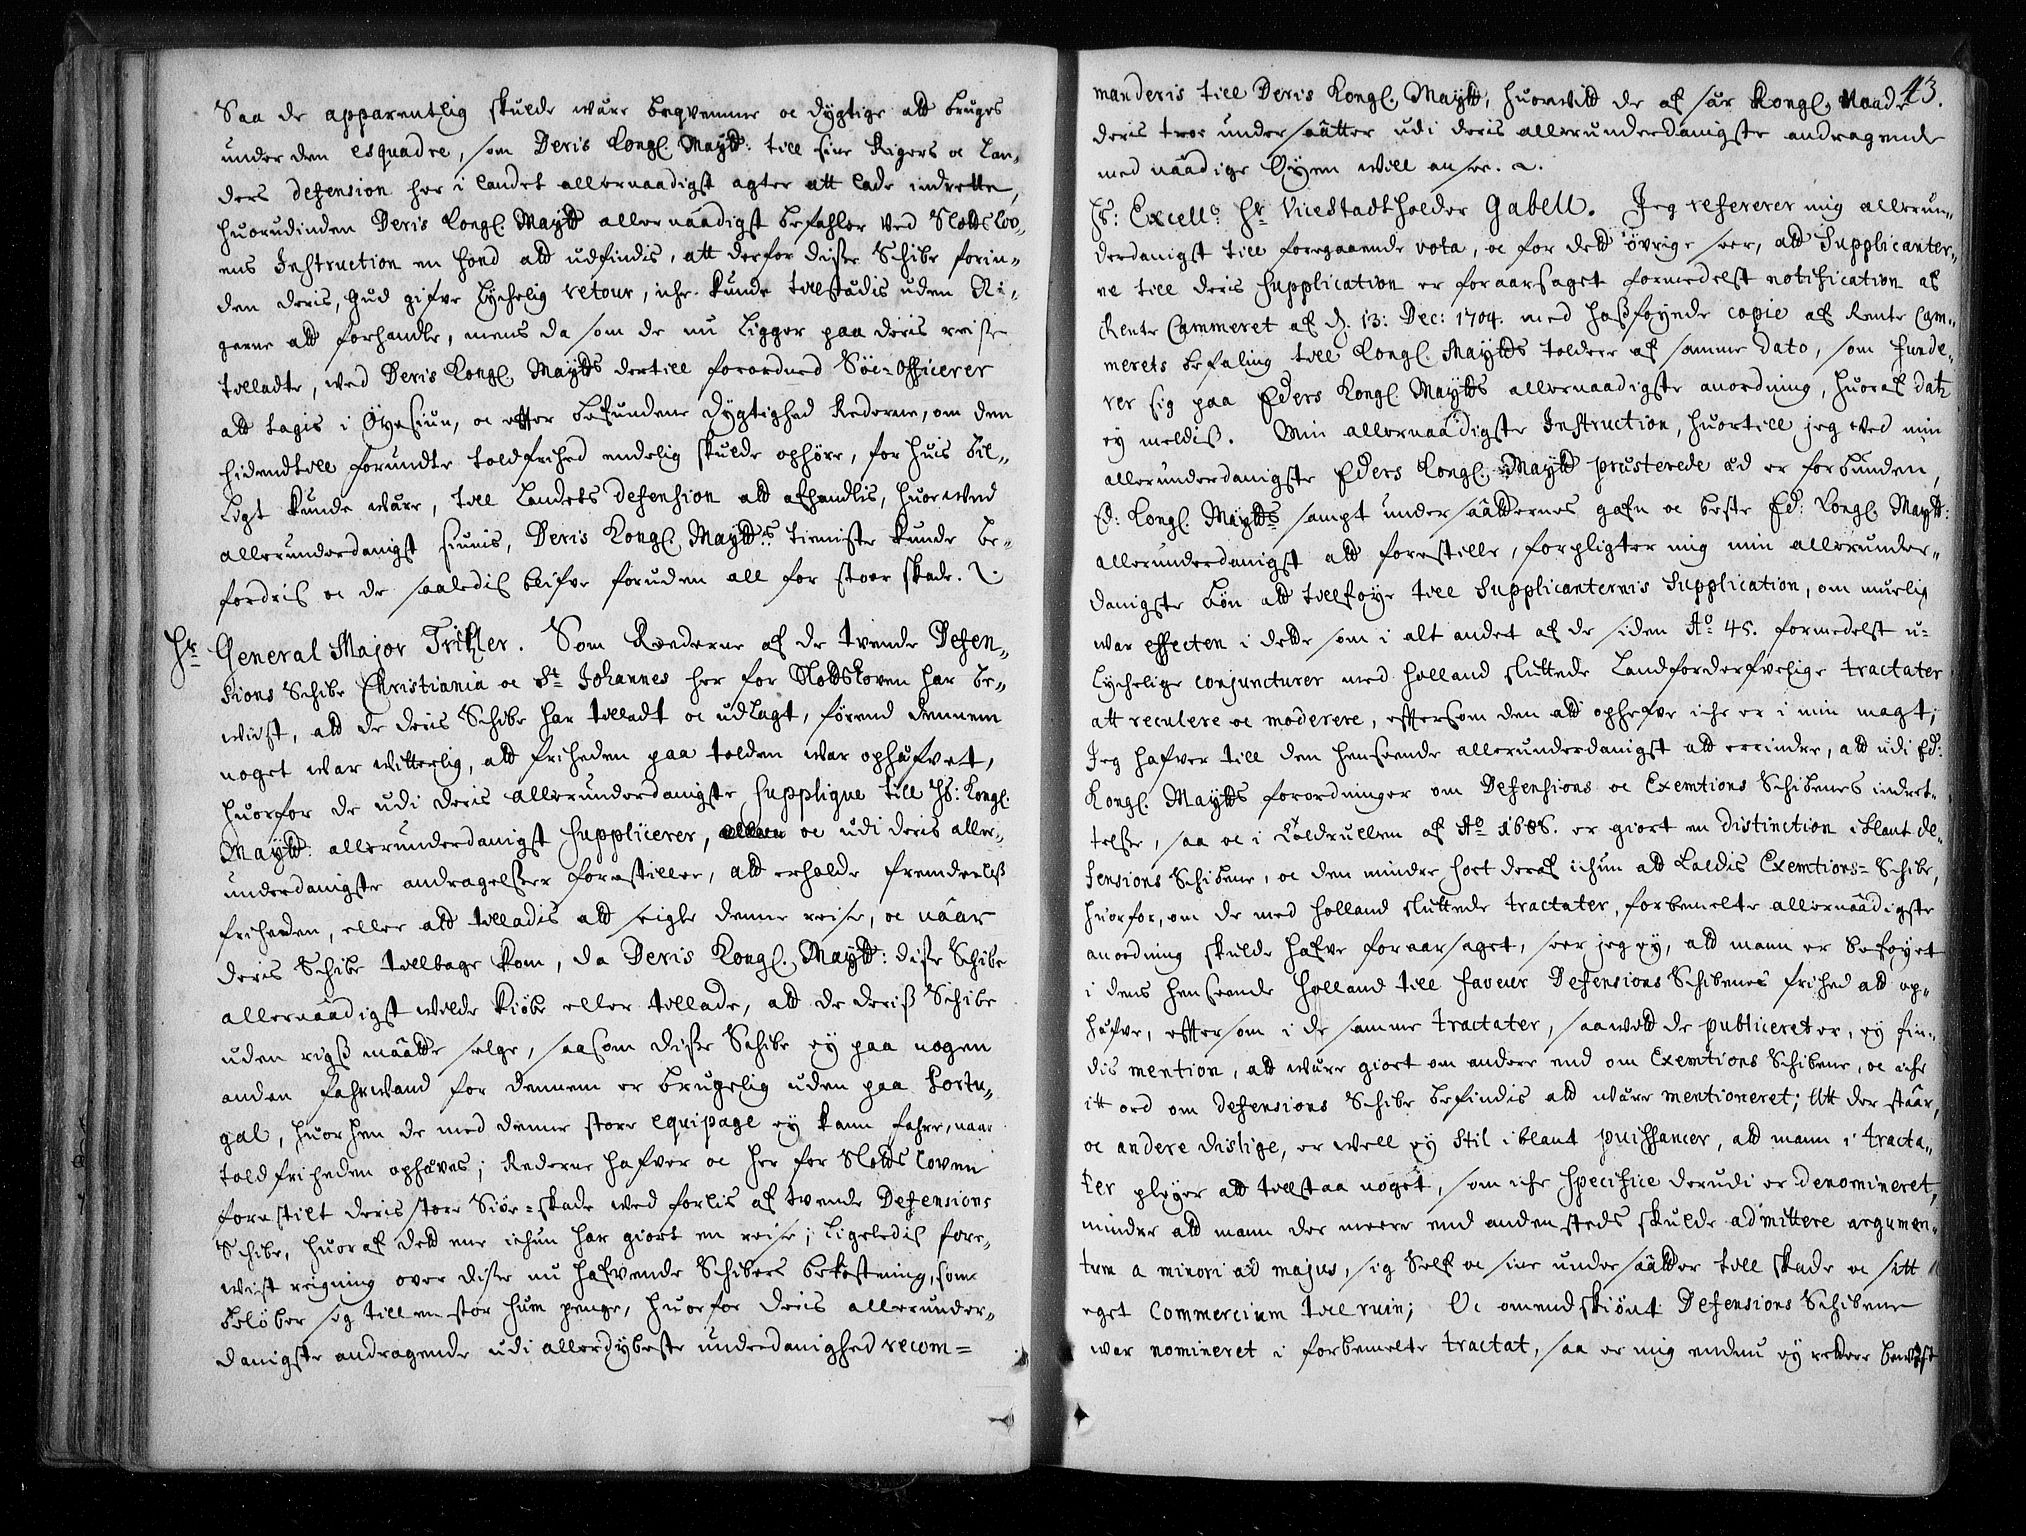 Saa de apparentlig skulde være beqvemme oc dygtige att bruges
under den esquadre, som Deris Kongl. Maytt: till sine Rigers oc Lan-
ders defension her i landet allernaadigst agter att lade indrette,
huorudinden Deris Kongl. Maytt allernaadigst befahler ved Slotslov-
ens Instruction en fond att udfindis, att derfor disse Schibe forin-
den deris, Gud gifve lychelig retour, iche kunde tilstædis uden Ri-
gerne att forhandle, mens da som de nu ligger paa deris reise
tilladte, ved Deris Kongl. Maytts dertill forordned Søe-Officerer
att tagis i Øyesiun, oc effter befundene dygtighed Rederne, om den
hidendtill forundte toldfrihed endelig skulde ophøre, for huis bil-
ligt kunde være, till Landets defension att afhandlis, huorved
allerunderdanigst siunis, Deris Kongl. Maytts tieniste kunde be-
fordris oc de saaledis blifve foruden all for stoer skade.
Hr General Major Tritzler. Som Rederne af de tvende Defen-
sions Schibe Christiania oc St Johannes her for Slotsloven har be-
wiist, att de deris Schibe har tilladt oc udlagt, førend dennem
noget war witterlig, att friheden paa tolden war ophæfvet,
huorfor de udi deris allerunderdanigste supplique till Hs: Kongl.
Maytt allerunderdanigst supplicerer, oc udi deris aller-
underdanigste andragelser forestiller, att erholde fremdeelß
friheden, eller att tilladis att seigle denne reise, oc naar
deris Schibe tilbage kom, da Deris Kongl. Maytt: disse Schibe
allernaadigst wilde kiøbe eller tillade, att de deriß Schibe
uden rigß maatte selge, saasom disse Schibe ey paa nogen
anden fahrwand for dennem er brugelig uden paa Portu-
gal, huorhen de med denne store equipage ey kann fahre, naar
toldfriheden ophæves; Rederne hafver oc her for Slotsloven
forestilt deris store Siøe-skade ved forlis af tvende Defensions
Schibe, huoraf dett ene ichun har giort en reise; ligeledis fore-
wist reigning over disse nu hafvende Schibers bekostning, som
beløber sig till en stor Sum penge, huorfor deris allerunder-
danigste andragende udi allerdybeste underdanighed recom-
43.
manderis till Deris Kongl. Maytt, huorvidt de af sær Kongl. Naade
deris troe undersaatter udi deris allerunderdanigste andragende
med naadige Øyen will ansee.
Hs: Excellce Hr Vicestadtholder Gabell. Jeg refererer mig allerun-
derdanigst till foregaaende vota, oc for dett øvrige seer, att Supplicanter-
ne till deris Supplication er foraarsaget formedelst notification af
Rente Cammeret af d. 13: Dec: 1704. med hoßføynde copie af Rente Cam-
merets befaling till Kongl. Maytts toldere af samme dato, som funde-
rer sig paa Eders Kongl. Maytts allernaadigste anordning, huoraf datz
ey meldiß. Min allernaadigste Instruction, huortill jeg ved min
allerunderdanigste Eders Kongl. Maytt præsterede æd er forbunden,
Ed: Kongl. Maytts sampt undersaatternes gafn oc beste Ed: Kongl. Maytt:
allerunderdanigst att forestille, forpligter mig min allerunder-
danigste bøn att tilføye till Supplicanternis Supplication, om muelig
war effecten i dette som i alt andet af de siden Ao 45. formedelst u-
lychelige conjuncturer med Holland sluttede Landforderfvelige tractater
att reculere oc moderere, effterson den att ophefve iche er i min magt;
Jeg hafver till den henseende allerunderdanigst att errindre, att udi Ed:
Kongl. Maytts forordninger om Defensions oc Exemtions Schibenes indret-
telse, saa oc i Toldrullen af Ao 1686. er giort en distinction iblant de-
fensions Schibene, oc den mindre sort deraf ichun att kaldis Exemtions-Schibe,
huorfor, om de med Holland sluttede tractater, forbemelte allernaadigste
anordning skulde hafve foraarsaget, seer jeg ey, att mann er beføyet
i dens henseende Holland till faveur Defensions Schibenes frihed att op-
hæfve, effter som i de samme tractater, saavidt de publiceret er, ey fin-
dis mention, att være giort om andere end om Exemtions Schibene, oc iche
itt ord om defensions Schibe befindis att være mentioneret; Att der staar,
oc andere deslige, er well ey stil iblant puissancer, att mann i tracta-
ter pleyer att tilstaa noget, som iche specifice derudi er denomineret,
mindre att mann der meere end andensteds skulde admittere argumen-
tum a minori ad majus, sig self oc sine undersaatter till skade oc sitt
eget Commercium till ruin; Oc omendskiønt Defensions Schibene
war nomineret i forbemelte tractat, saa er mig endnu ey videre bewist